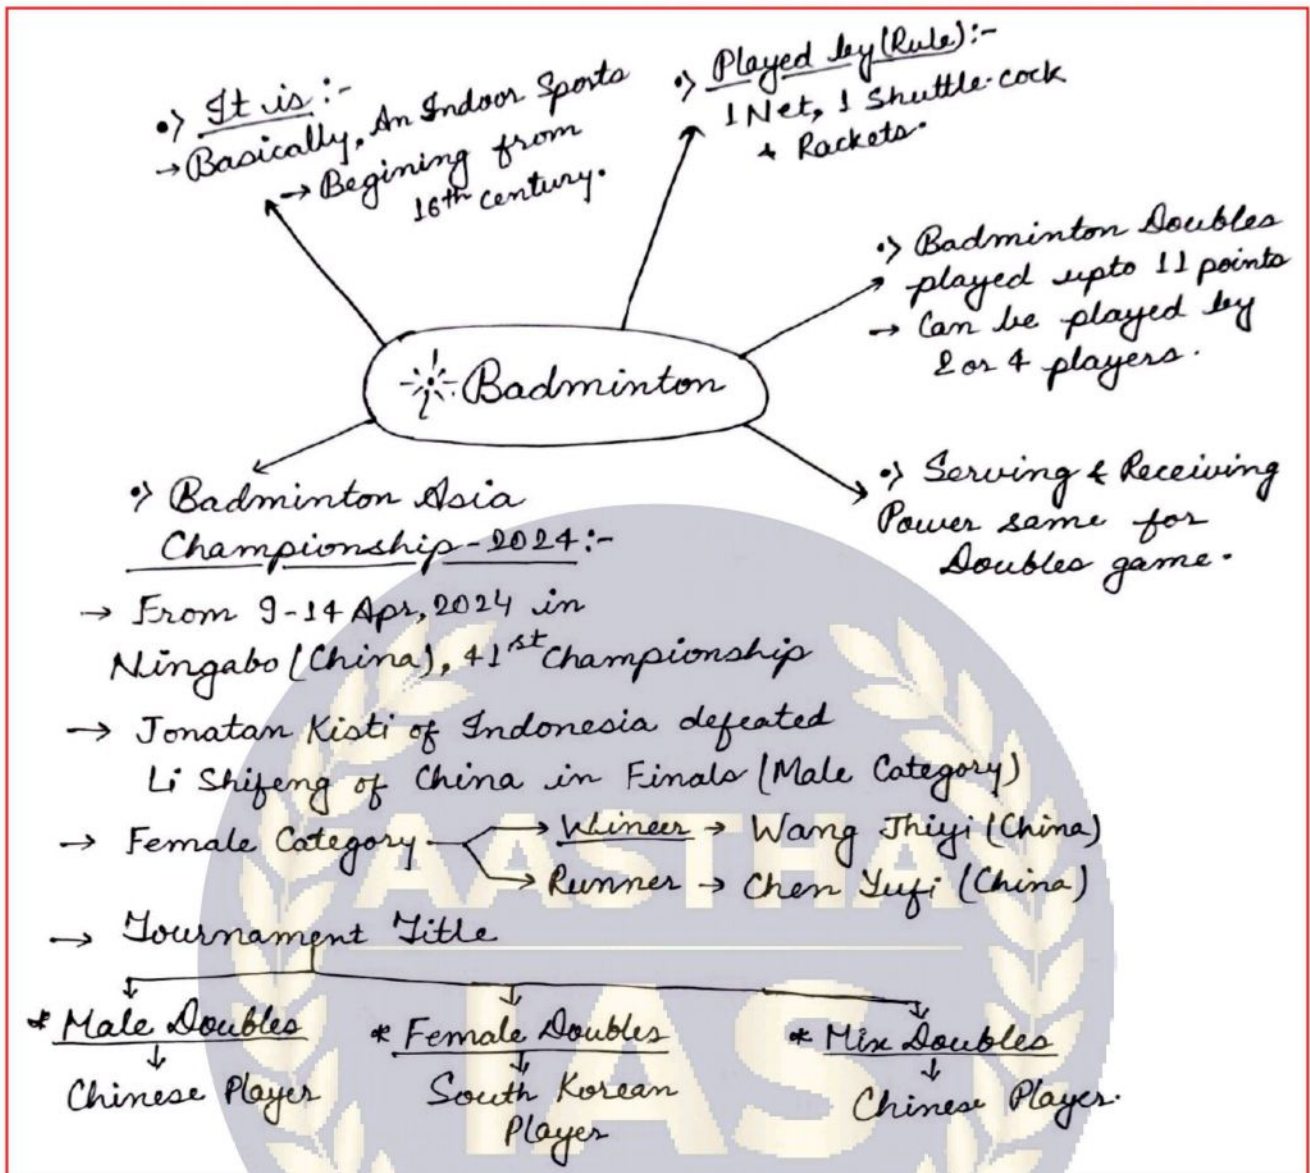 •> It is :-
→ Basically, An Indoor Sports
→ Begining from
16th century.
•> Played by (Rule) :-
1 Net, 1 Shuttle-cock
& Rackets.
•> Badminton Doubles
played upto 11 points
→ Can be played by
2 or 4 players.
Badminton
•> Serving & Receiving
Power same for
Doubles game.
•> Badminton Asia
Championship - 2024 :-
→ From 9-14 Apr, 2024 in
Ningabo (China), 41st Championship
→ Jonatan Kisti of Indonesia defeated
Li Shifeng of China in Finals (Male Category)
→ Female Category → Whineer → Wang Jhiyi (China)
→ Runner → Chen Yufi (China)
→ Tournament Title
* Male Doubles
Chinese Player
* Female Doubles
South Korean
Player
* Mix Doubles
Chinese Player.
AASTHA
IAS